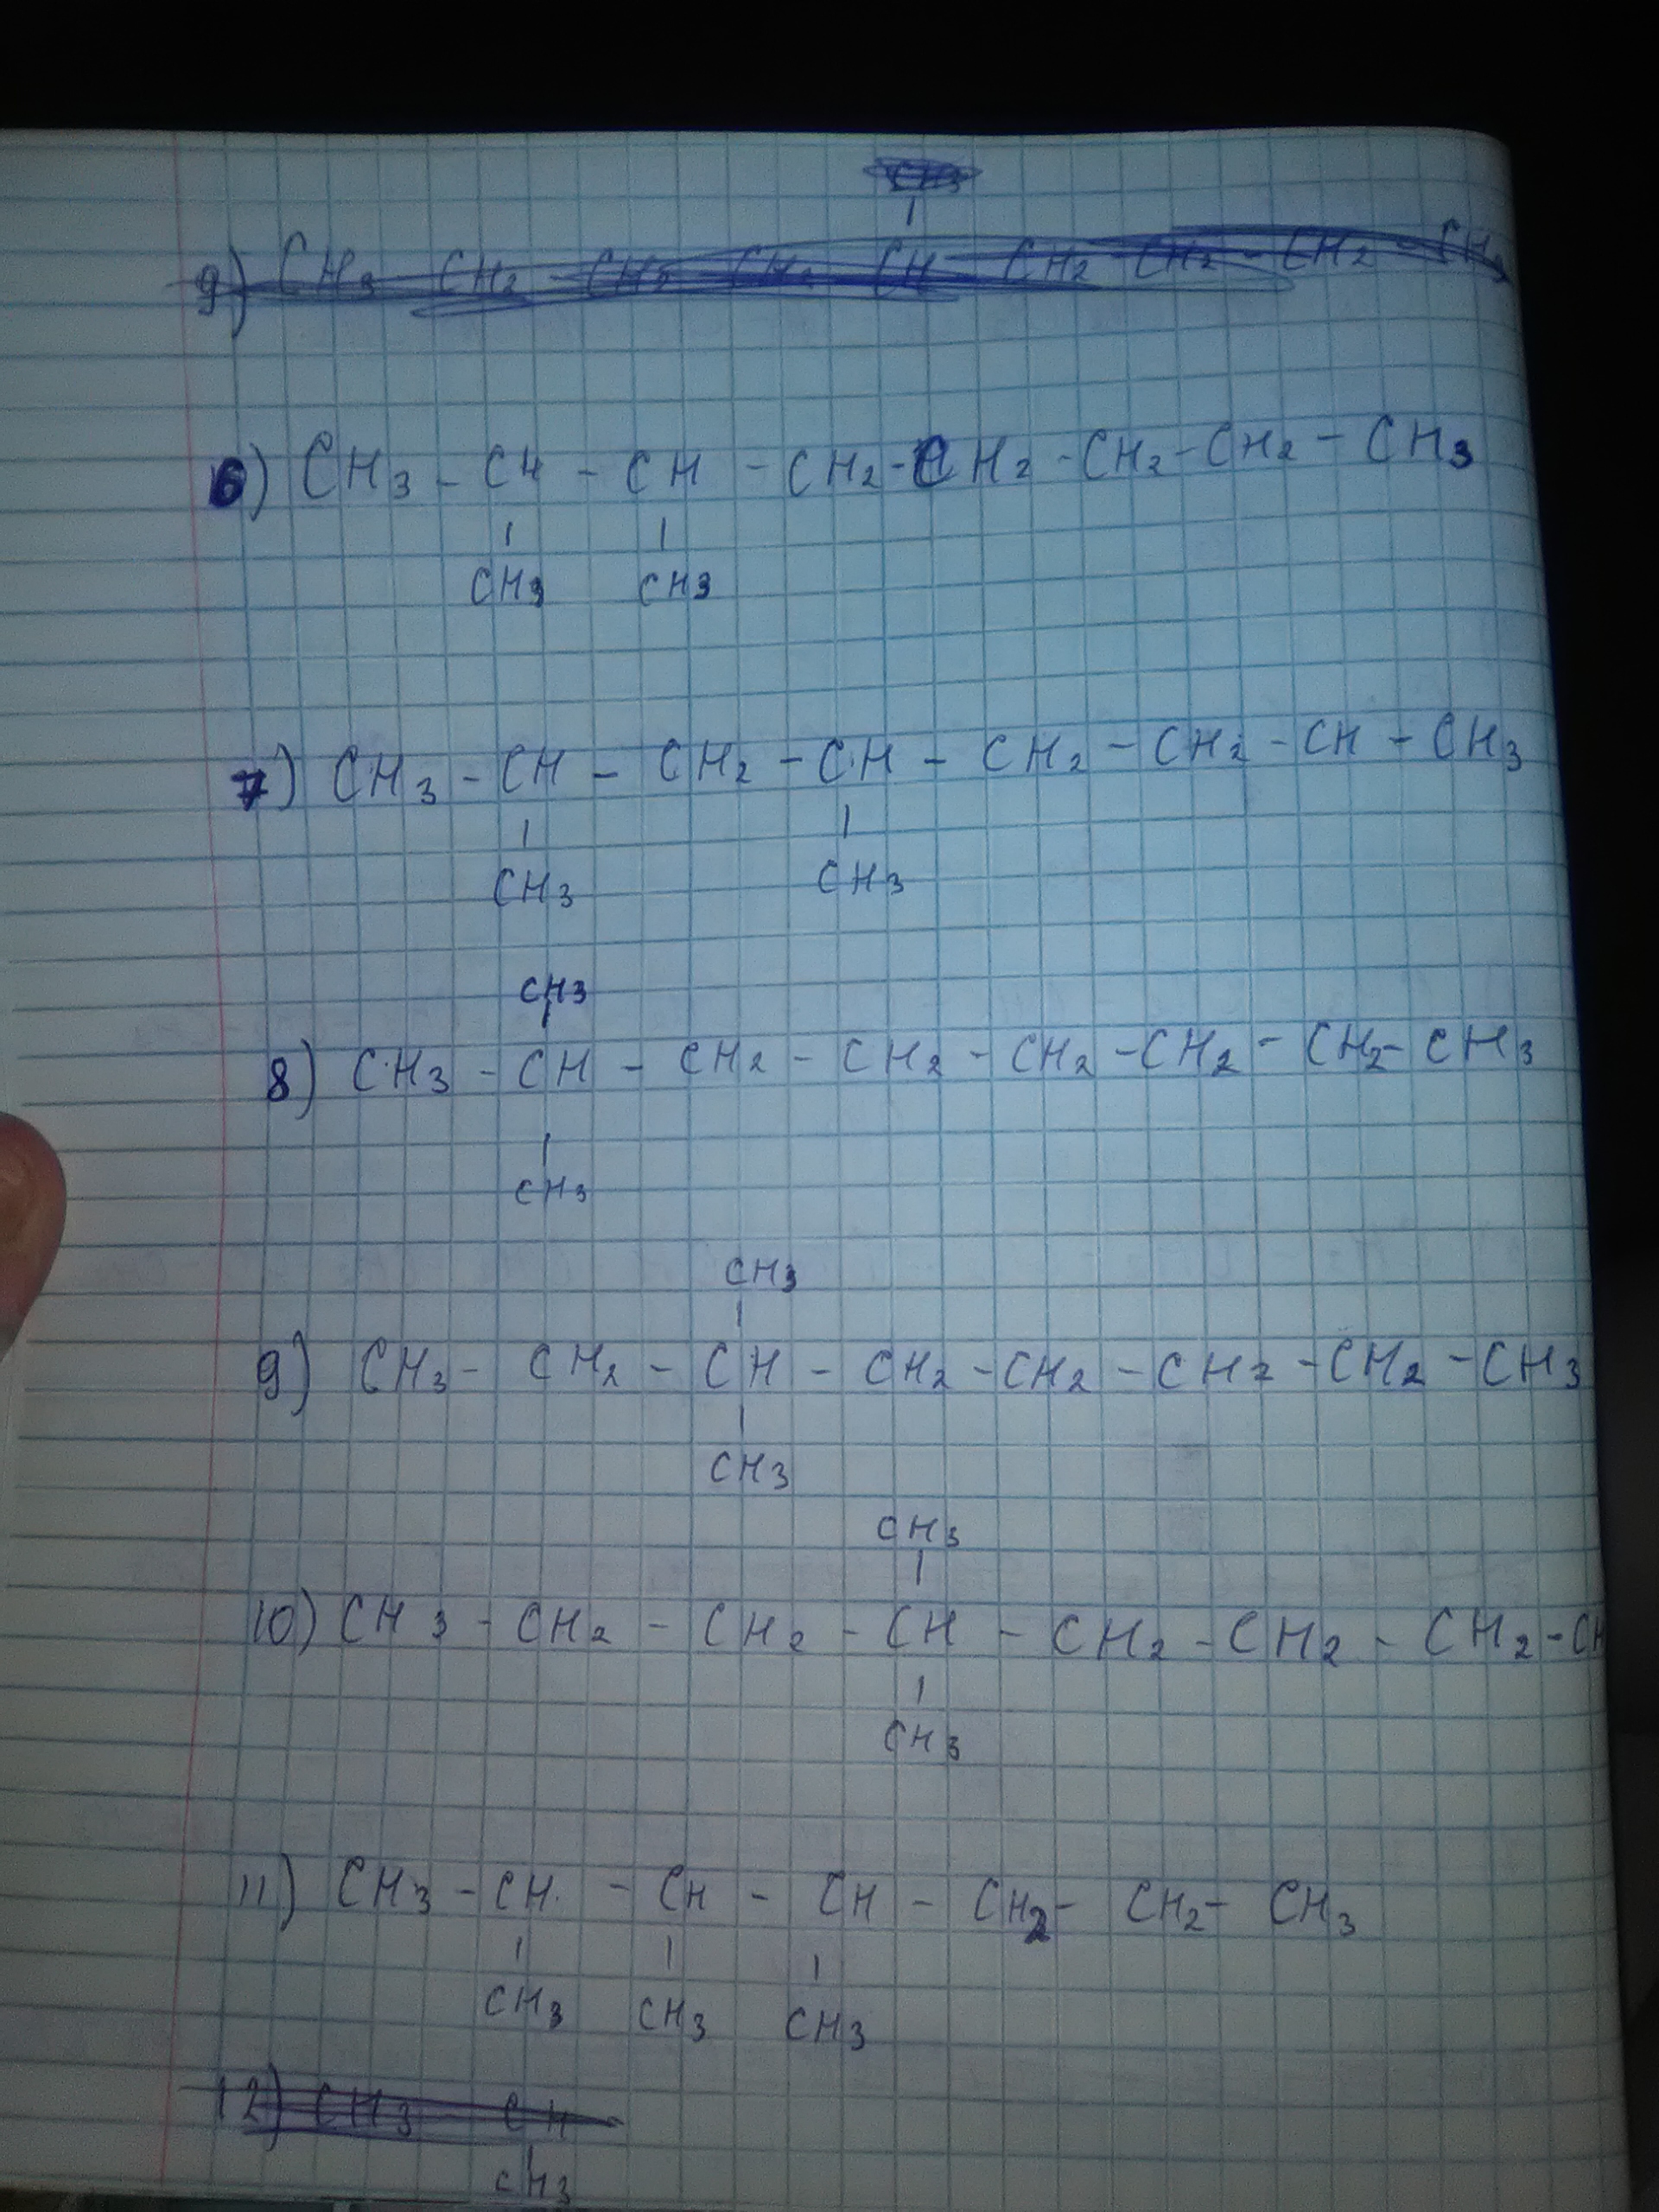 CH3
9) CH3 - CH2 - CH2 - CH2 - CH - CH2 - CH2 - CH2 - CH3
6) CH3 - CH - CH - CH2 - CH2 - CH2 - CH2 - CH3
CH3 CH3
7) CH3 - CH - CH2 - CH - CH2 - CH2 - CH - CH3
CH3 CH3
CH3
8) CH3 - CH - CH2 - CH2 - CH2 - CH2 - CH2 - CH3
CH3
CH3
9) CH3 - CH2 - CH - CH2 - CH2 - CH2 - CH2 - CH3
CH3
CH3
10) CH3 - CH2 - CH2 - CH - CH2 - CH2 - CH2 - CH
CH3
11) CH3 - CH - CH - CH - CH2 - CH2 - CH3
CH3 CH3 CH3
12) CH3 - CH
CH3